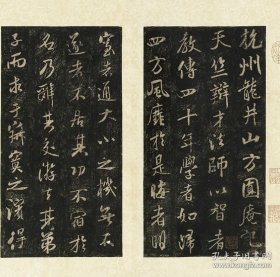 杭州龍井山方圓庵記
天竺辯才法師以智者
教傳四十年學者如歸
四方風靡於是晦者明
窒者通大小之機無不
遂者不居其功不宿於
名乃辭其交游去其弟
子而求於寂寞之濱得